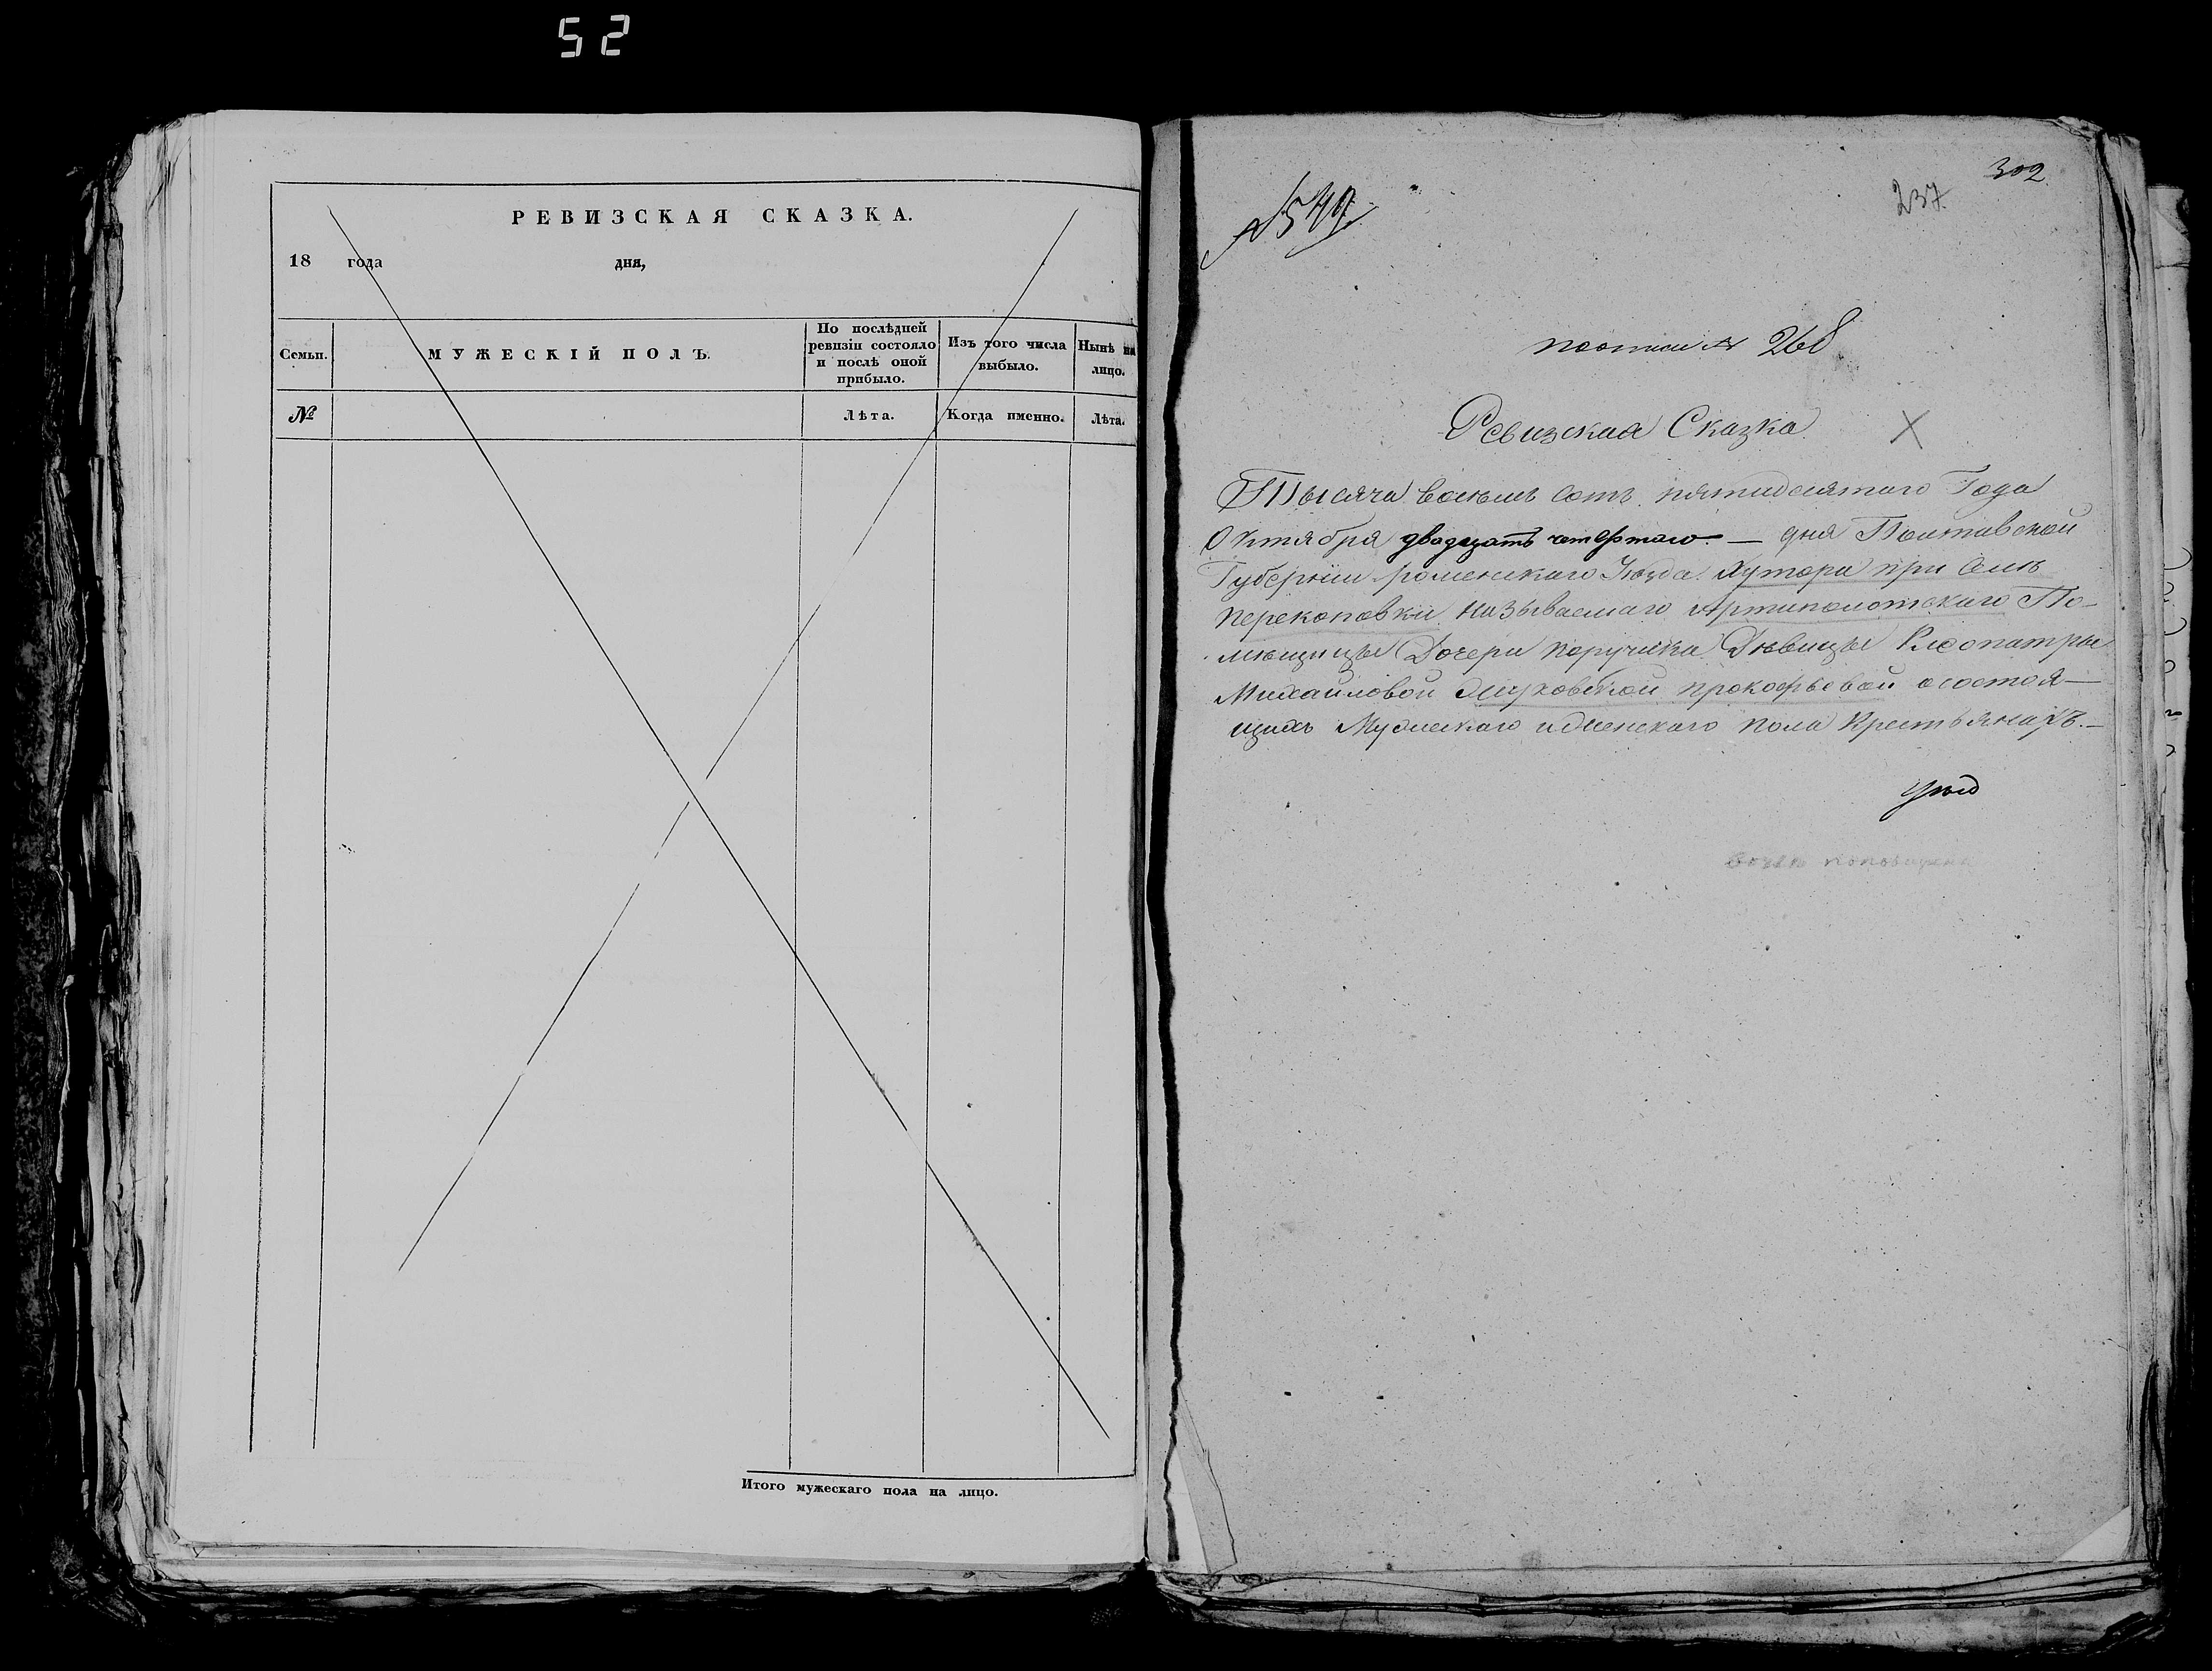 52
РЕВИЗСКАЯ СКАЗКА.
18 года дня,
Семьи.
МУЖЕСКІЙ ПОЛЪ.
По послѣдней ревизіи состояло и послѣ оной прибыло.
Изъ того числа выбыло.
Нынѣ на лицо.
№
Лѣта.
Когда именно.
Лѣта.
Итого мужескаго пола на лицо.
302
237
№ 549
№ 268
Ревизская Сказка
Тысяча восемь сотъ пятидесятаго Года
Октября двадцать четвертаго — дня Полтавской
Губерніи роменскаго Уѣзда Хутора при Селѣ
Перекоповки называемаго Артиполотскаго По-
мѣщицы Дочери поручика Дѣвицы Клеопатры
Михайловой прокофьевой осостоя-
щихъ Мужескаго иженскаго пола Крестьянахъ.—